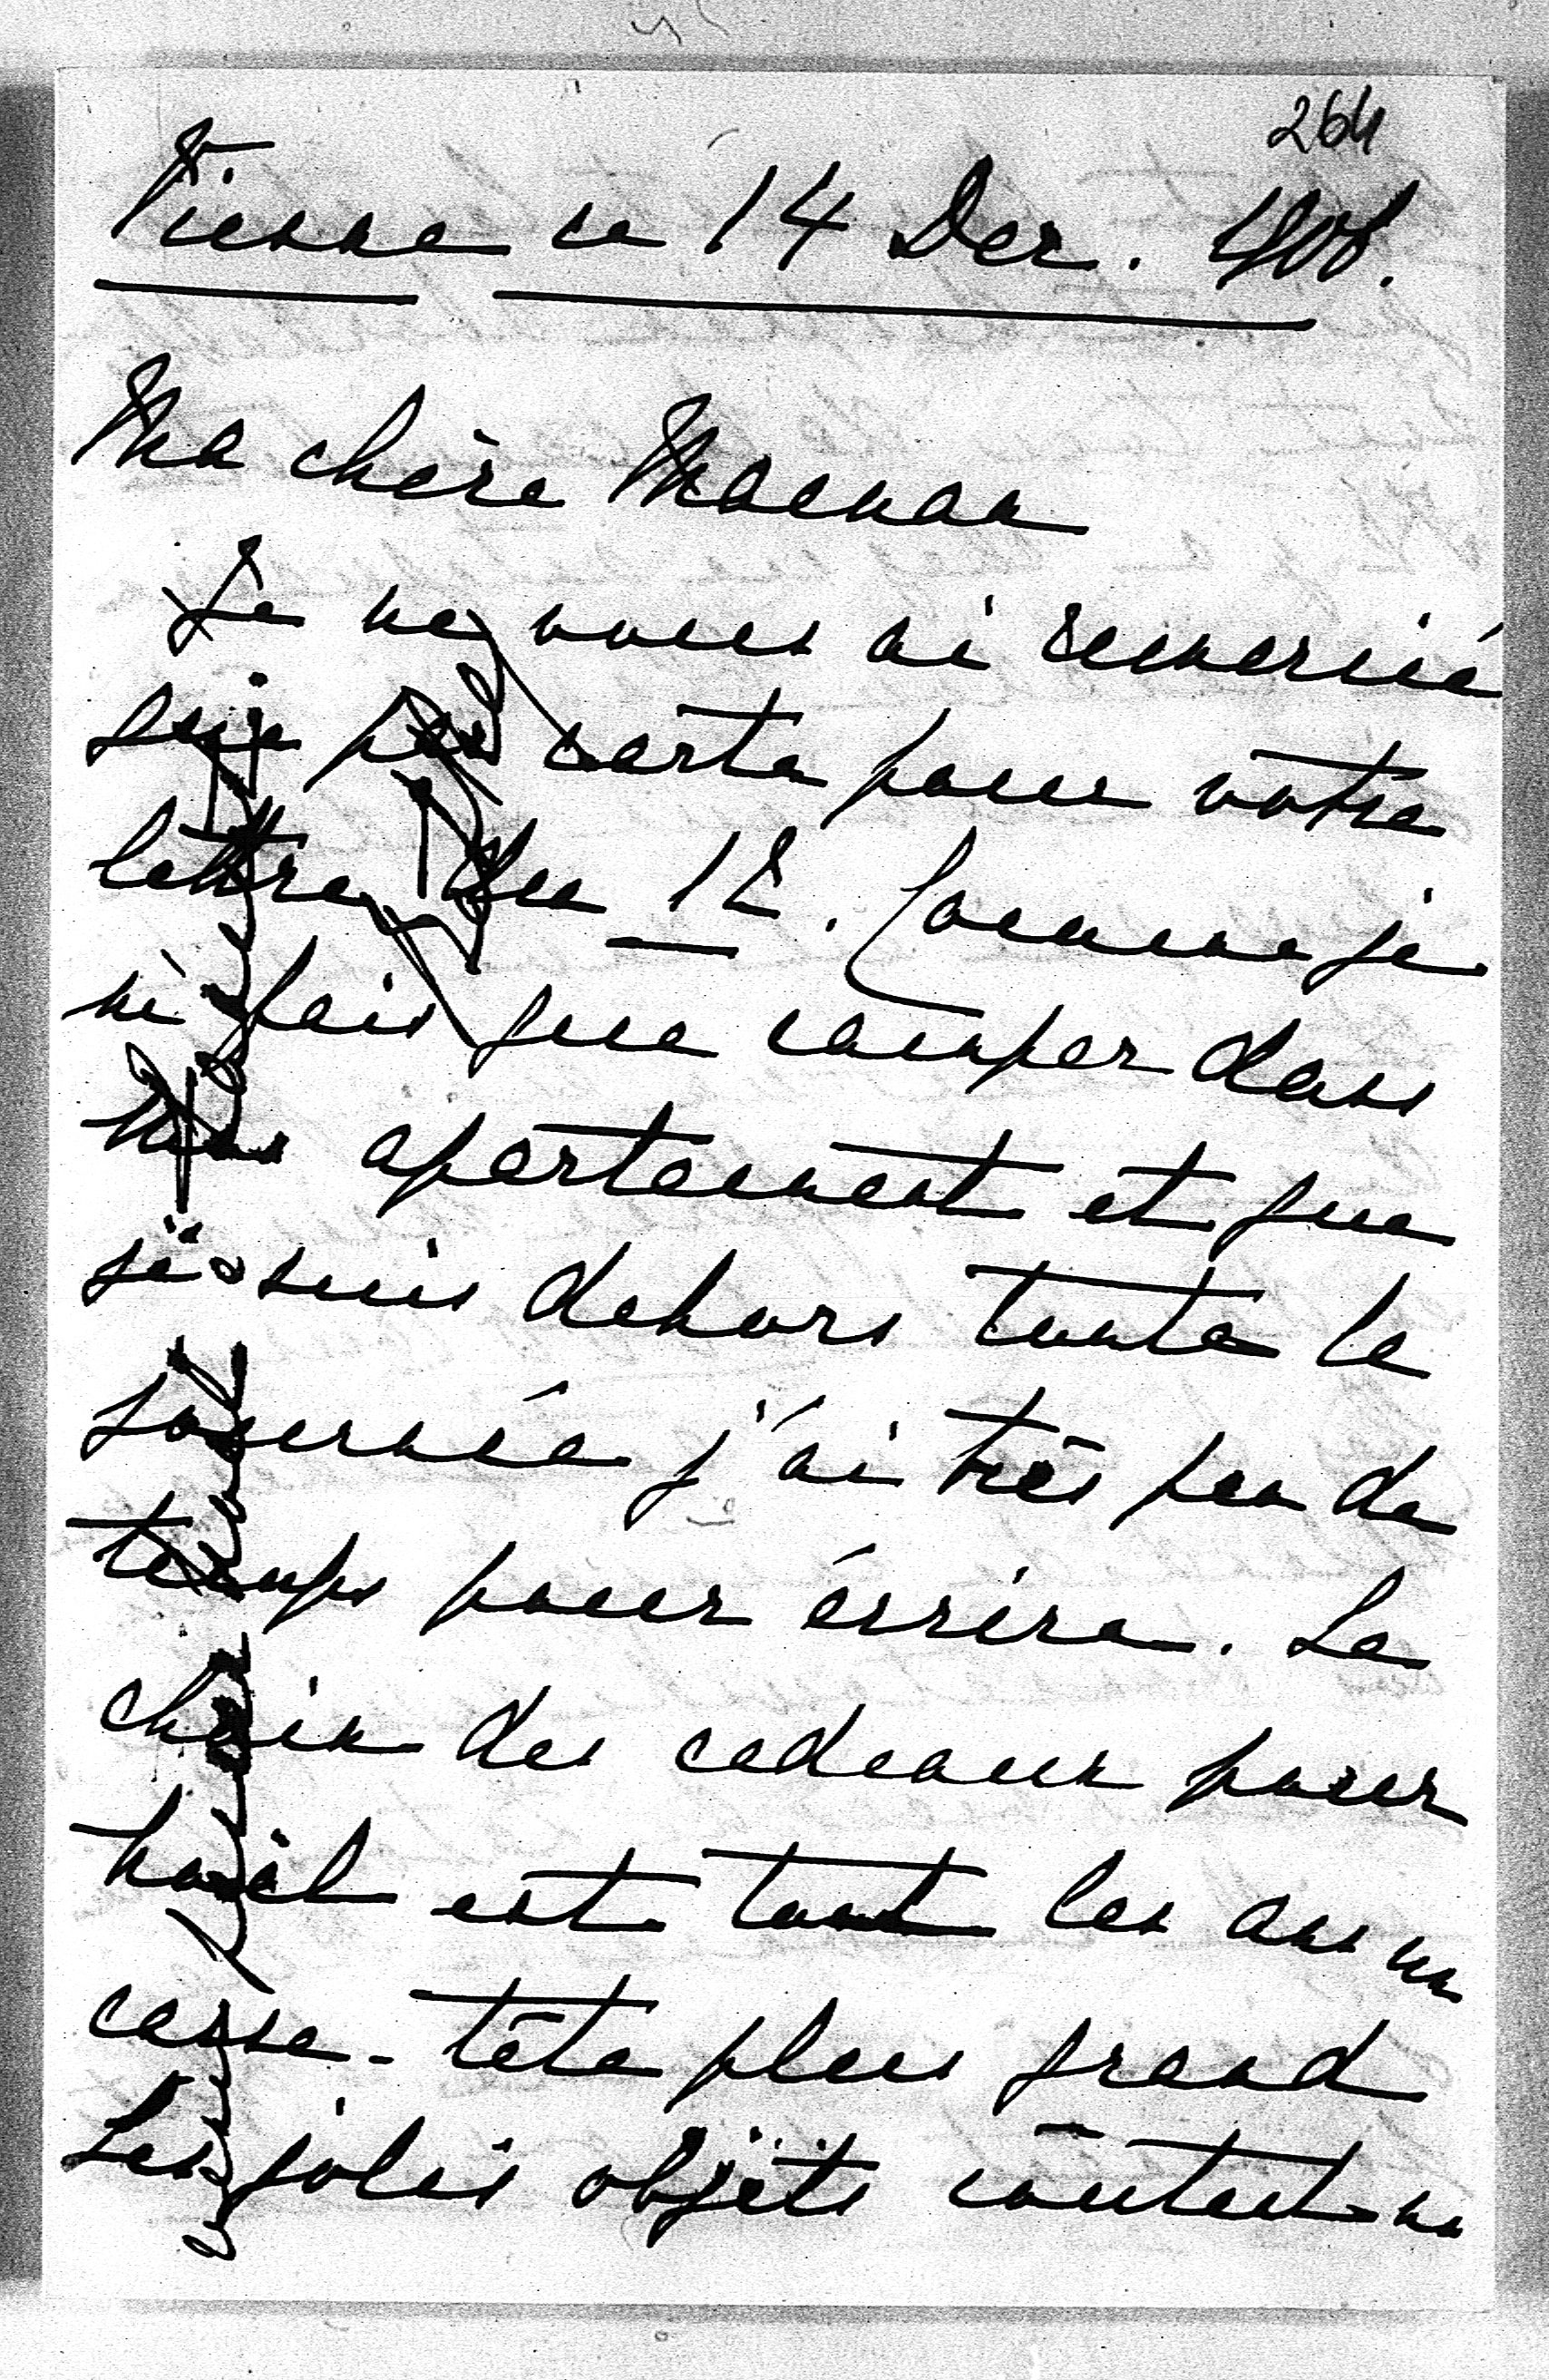 264
Vienne ce 14 Dec. 1908.
Ma chère Maman
Je ne vous ai remercié
que par carte pour votre
lettre du 12. Comme je
ne fais que camper dans
mon apartement et que
je suis dehors toute la
journée j'ai très peu de
temps pour écrire. Le
choix des cadeaux pour
Noël est tout les ans un
casse-tête plus grand
Les jolis objets coûtent un